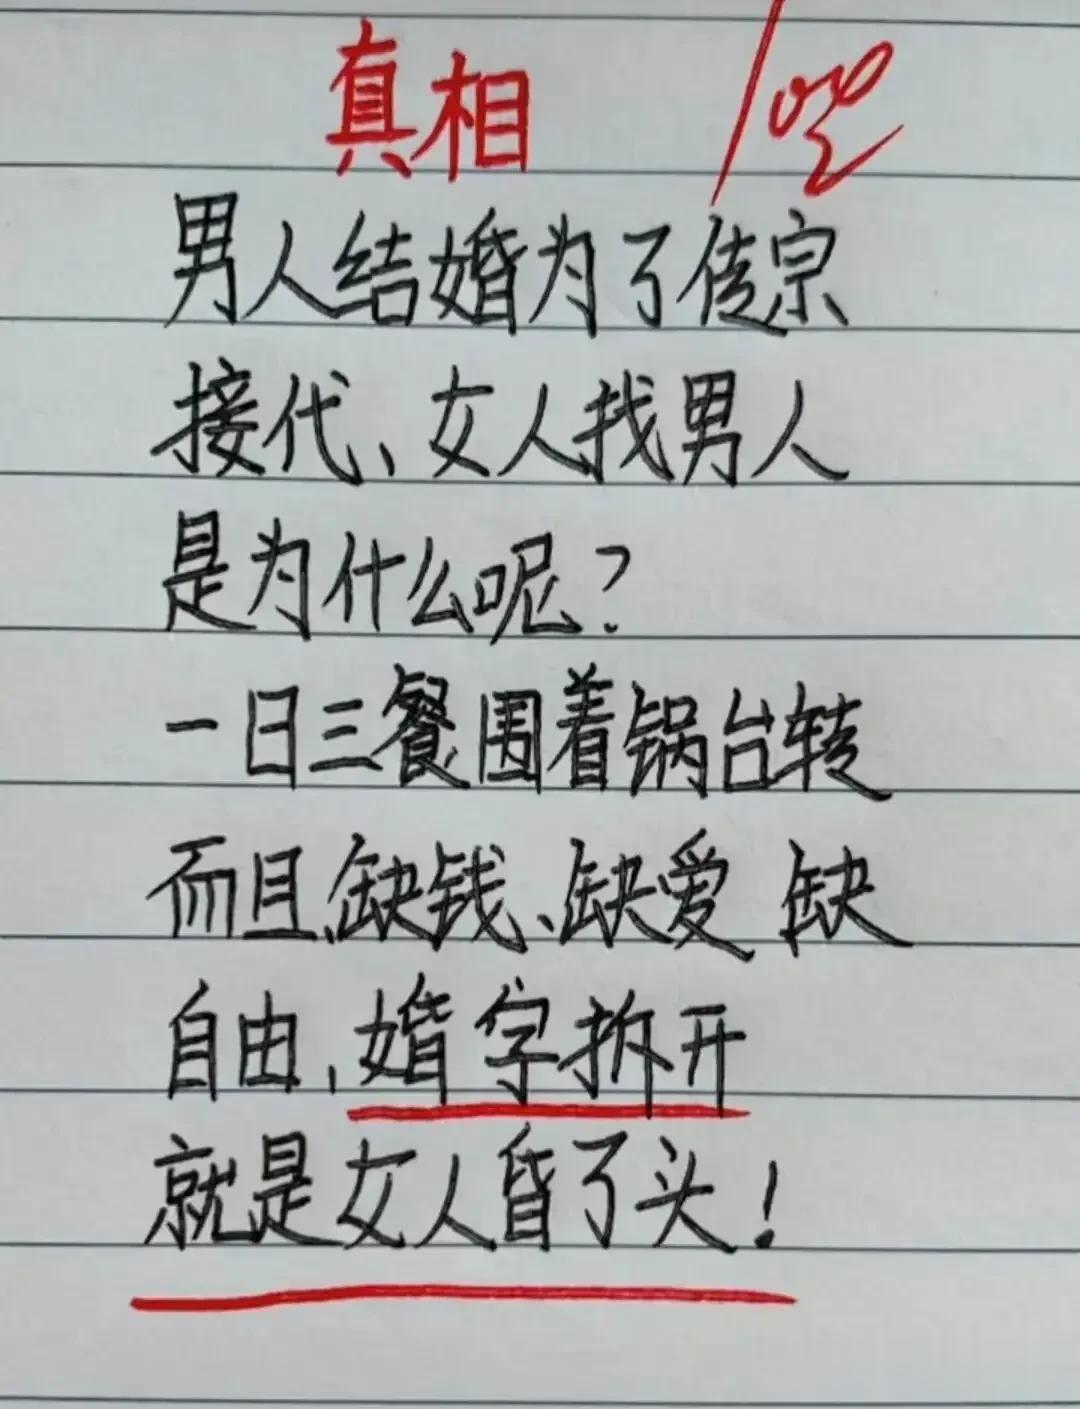 真相
男人结婚为了传宗
接代、女人找男人
是为什么呢?
一日三餐围着锅台转
而且、缺钱、缺爱 缺
自由,婚字拆开
就是女人昏了头!